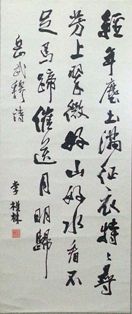 經年塵土滿征衣特〻尋
芳上翠微好山好水看不
足馬蹄催送月明歸
岳武穆詩
李